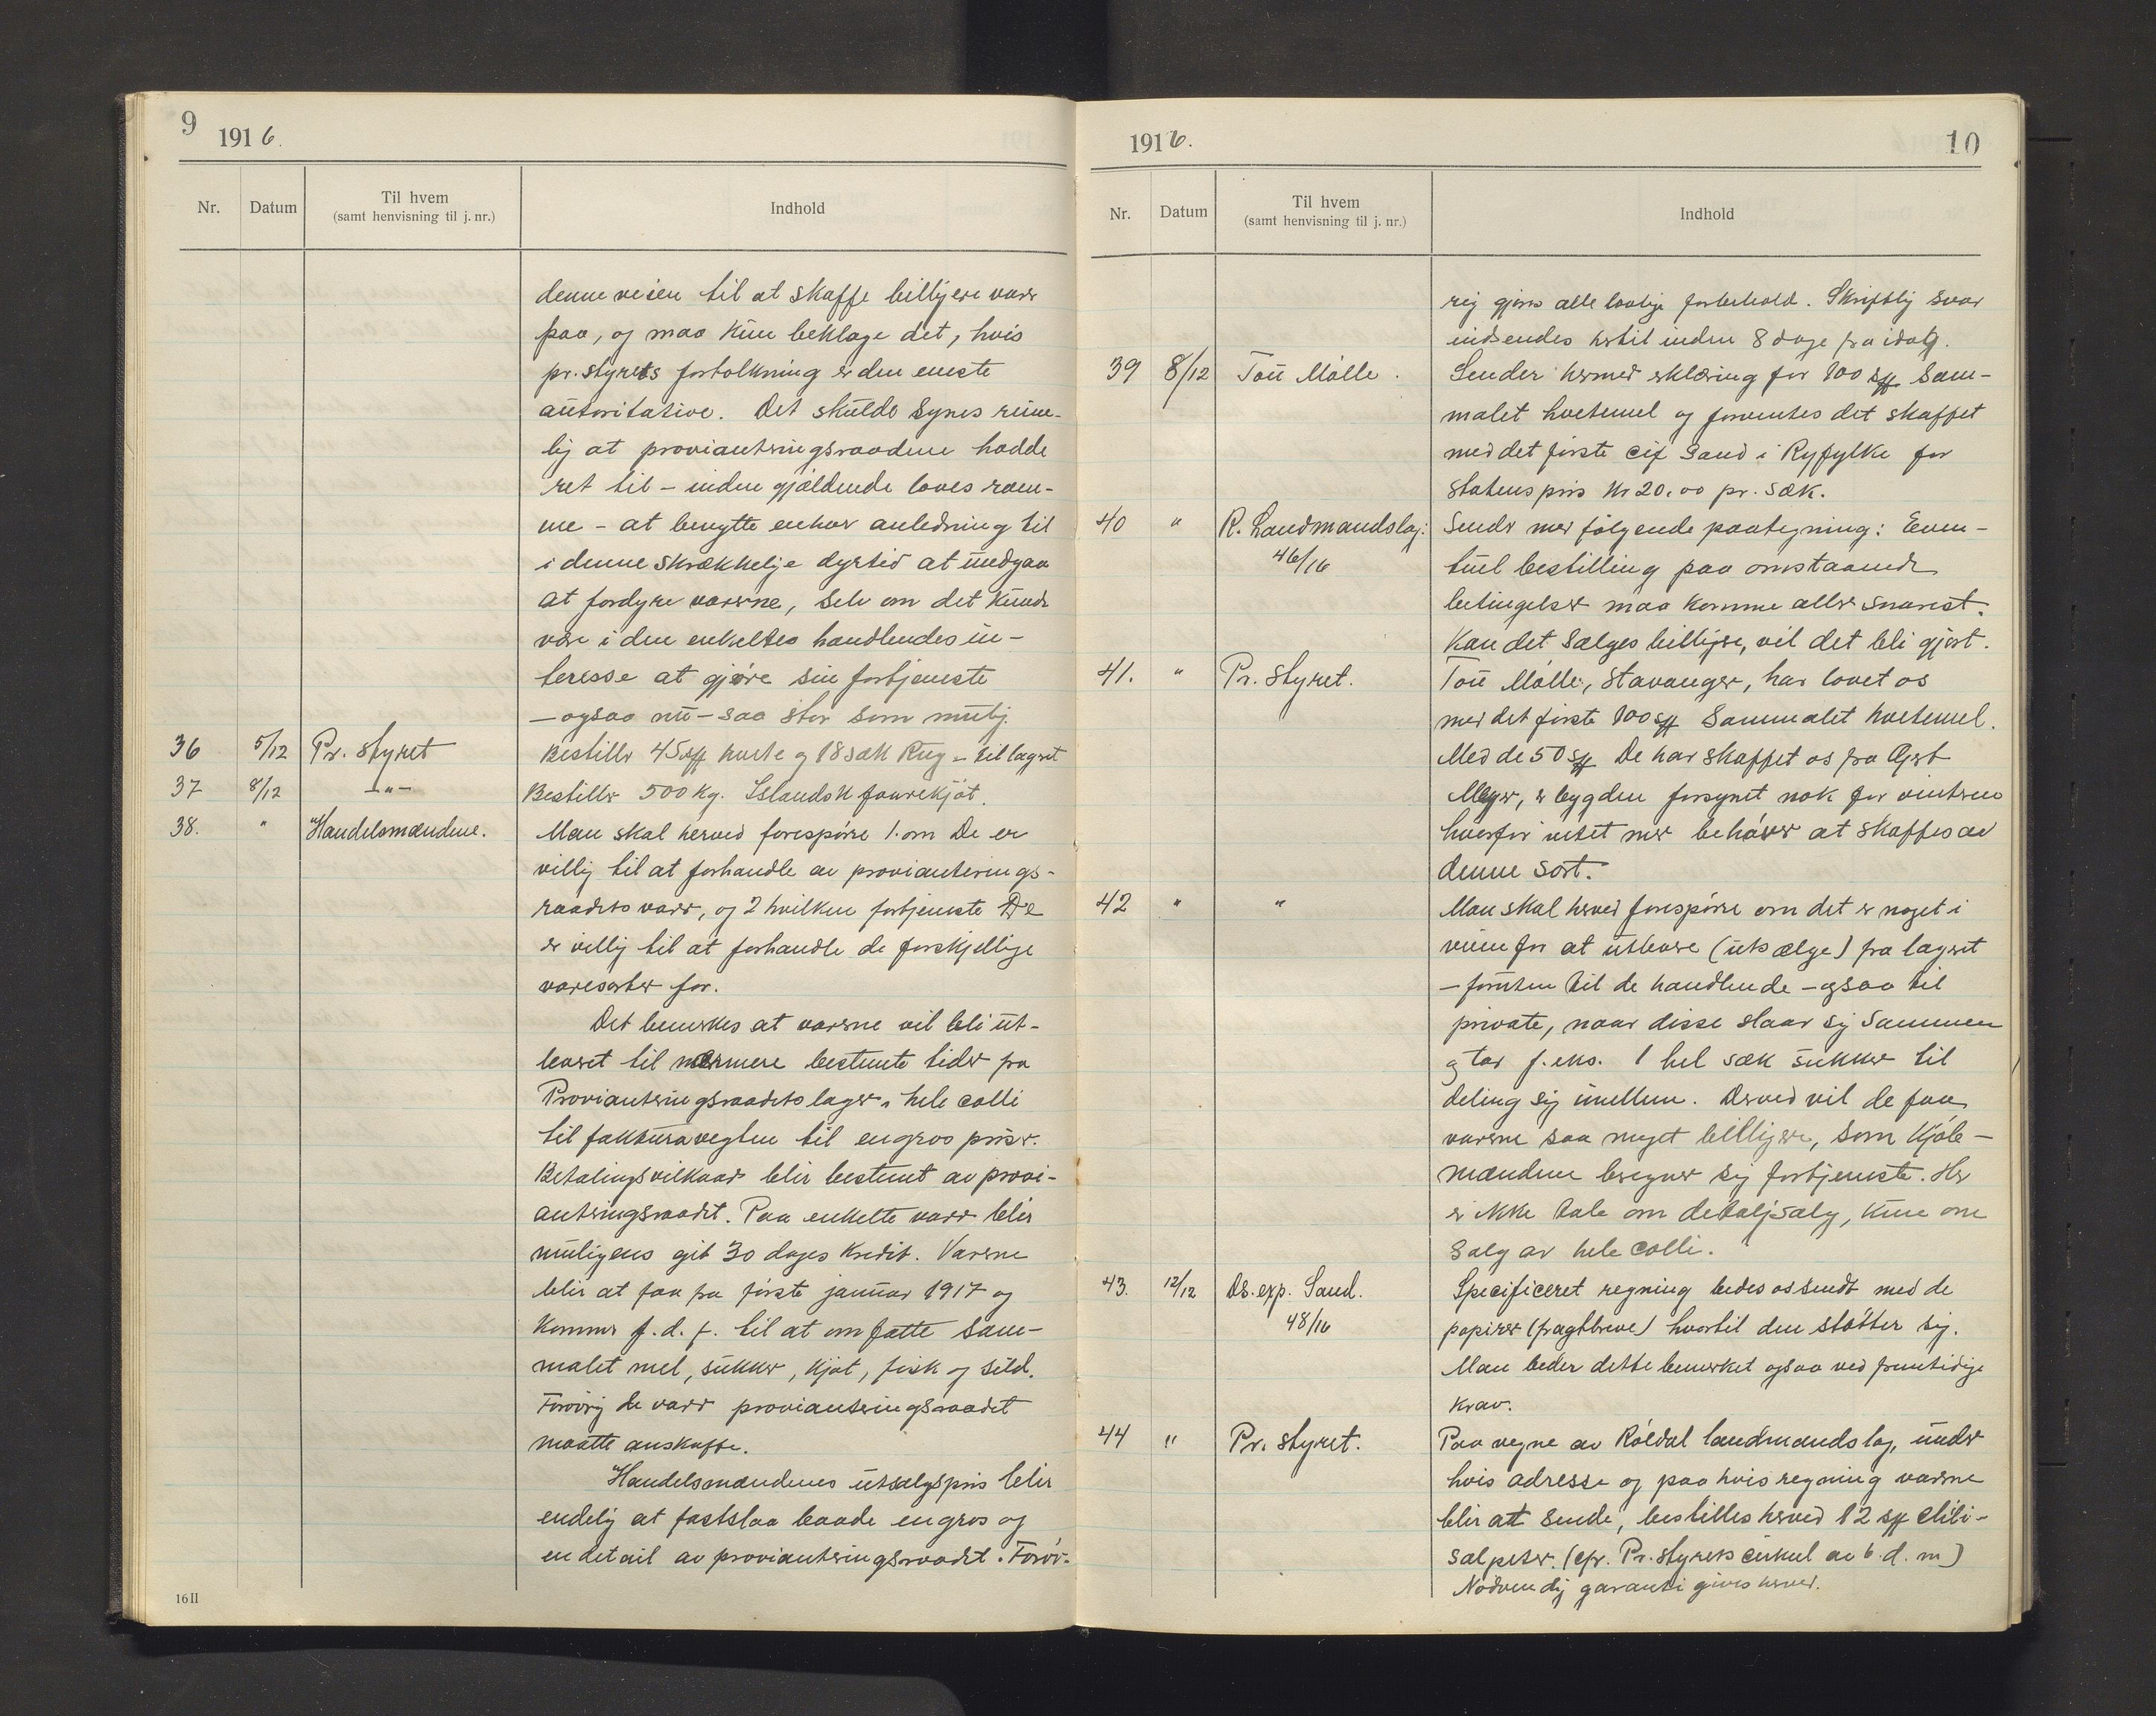 9
1916.
Nr.
Datum
Til hvem
(samt henvisning til j. nr.)
Indhold
denne veien til at skaffe billigere varer
paa, og maa kun beklage det, hvis
pr. styrets fortolkning er den eneste
autoritative. Det skulde synes rime-
lig at provianteringsraadene hadde
ret til – inden gjældende loves ram-
me – at benytte enhver anledning til
i denne skrækkelige dyrtid at undgaa
at fordyre varerne, selv om det kunde
være i den enkeltes handlendes in-
teresse at gjøre sin fortjeneste
– ogsaa nu – saa stor som mulig.
36 5/12 Pr. styret Bestiller 45 sgk hvete og 18 sæk Rug – til lagret
37 8/12 –"– Bestiller 500 kg. Islandsk faarekjøt.
38. " Handelsmændene. Man skal herved forespørre 1. om De er
villig til at forhandle av provianterings-
raadets varer, og 2 hvilken fortjeneste De
er villig til at forhandle de forskjellige
varesorter for.
Det bemerkes at varerne vil bli ut-
levert til nærmere bestemte tider fra
Provianteringsraadets lager i hele colli
til fakturavegten til engros priser.
Betalingsvilkaar blir bestemt av provi-
anteringsraadet. Paa enkelte varer blir
muligens git 30 dages kredit. Varerne
blir at faa fra første januar 1917 og
kommer f. d. f. til at omfatte sam-
malet mel, sukker, kjøt, fisk og sild.
Forøvrig de varer provianteringsraadet
maatte anskaffe.
Handelsmændenes utsalgspris blir
endelig at fastslaa baade engros og
en detail av provianteringsraadet. Forøv-
16 II
1916.
10
Nr.
Datum
Til hvem
(samt henvisning til j. nr.)
Indhold
rig gjøres alle lovlige forbehold. Skriftlig svar
indsendes hertil inden 8 dage fra idag.
39 8/12 Tou Mølle. Sender hermed erklæring for 100 sgk sam-
malet hvetemel og forventes det skaffet
med det første cif Sand i Ryfylke for
statens pris kr 20.00 pr. sæk.
40 " R. Landmandslag: Sender med følgende paategning: Even-
46/16 tuel bestilling paa omstaaende
betingelser maa komme aller snarest.
Kan det sælges billigere, vil det bli gjort.
41. " Pr. styret. Tou Mølle, Stavanger, har lovet os
med det første 100 sgk sammalet hvetemel.
Med de 50 sgk De har skaffet os fra Gert
Meyer, er bygden forsynet nok for vinteren
hvorfor intet mer behøver at skaffes av
denne sort.
42 " " Man skal herved forespørre om det er noget i
veien for at utlevere (utsælge) fra lagret
– foruten til de handlende – ogsaa til
private, naar disse slaar sig sammen
og tar f. eks. 1 hel sæk sukker til
deling sig imellem. Derved vil de faa
varerne saa meget billigere, som kjøb-
mændene beregner sig fortjeneste. Her
er ikke tale om detaljsalg, kun om
salg av hele colli.
43. 12/12 Ds. exp. Sand. Specificeret regning bedes os sendt med de
48/16 papirer (fragtbreve) hvortil den støtter sig.
Man beder dette bemerket ogsaa ved fremtidige
krav.
44 " Pr. styret. Paa vegne av Røldal landmandslag, under
hvis adresse og paa hvis regning varerne
blir at sende, bestilles herved 12 sgk chili-
salpeter. (cfr. Pr. styrets cirkul av 6. d. m)
Nødvendig garanti gives herved.